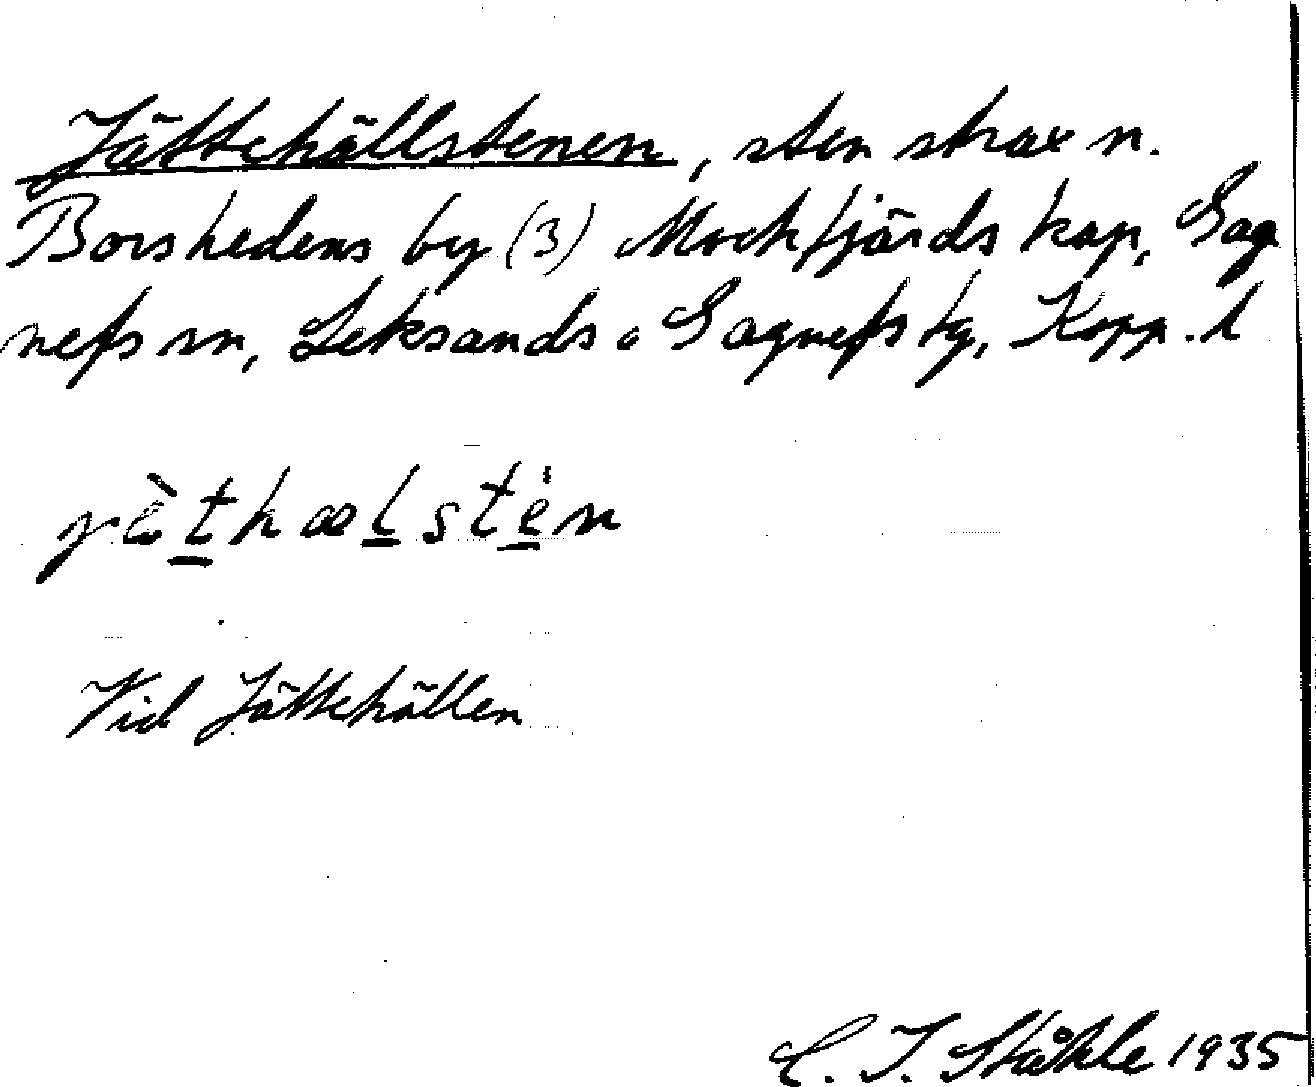 Jättehällstenen, sten strax n.
Borshedens by (3) Mockfjärds kap, Gag
nefs sn, Leksands o Gagnefs tg, Kopp. l
Vid Jättehällen
C. I. Ståhle 1935